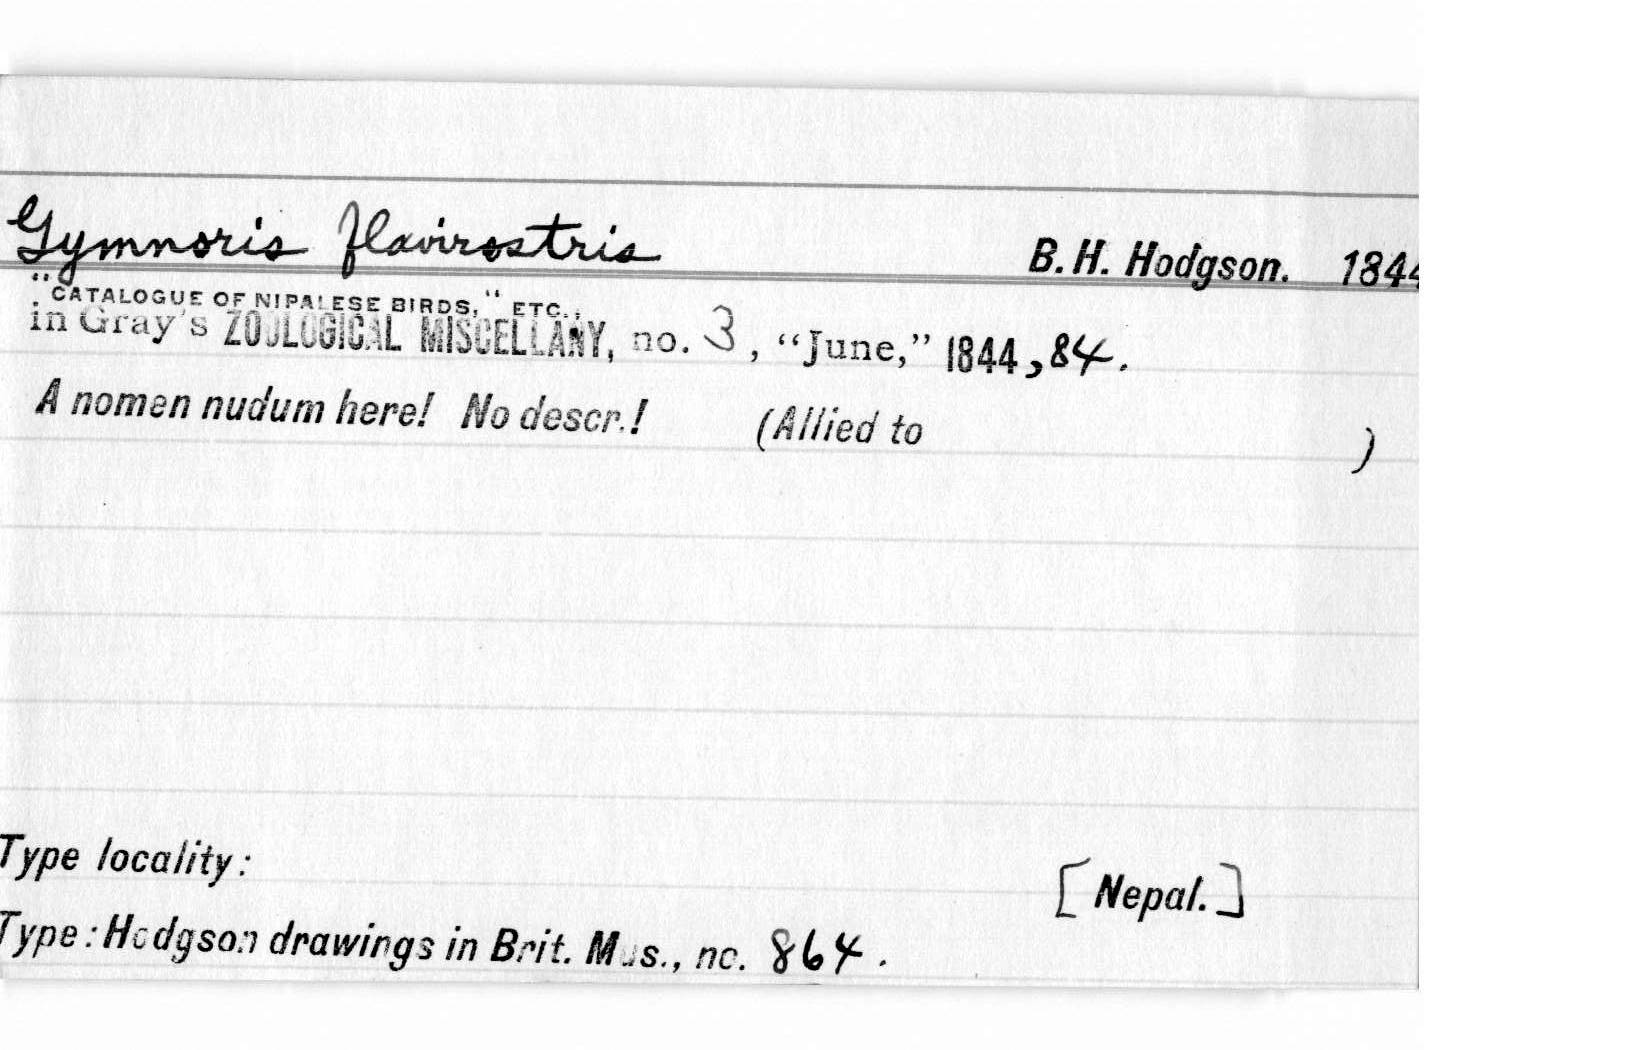 Gymnoris flavirostris B. H. Hodgson. 1844
"CATALOGUE OF NIPALESE BIRDS," ETC.,
in Gray's ZOOLOGICAL MISCELLANY, no. 3, "June," 1844, 84.
A nomen nudum here! No descr.! (Allied to )
Type locality: [Nepal.]
Type: Hodgson drawings in Brit. Mus., no. 864.